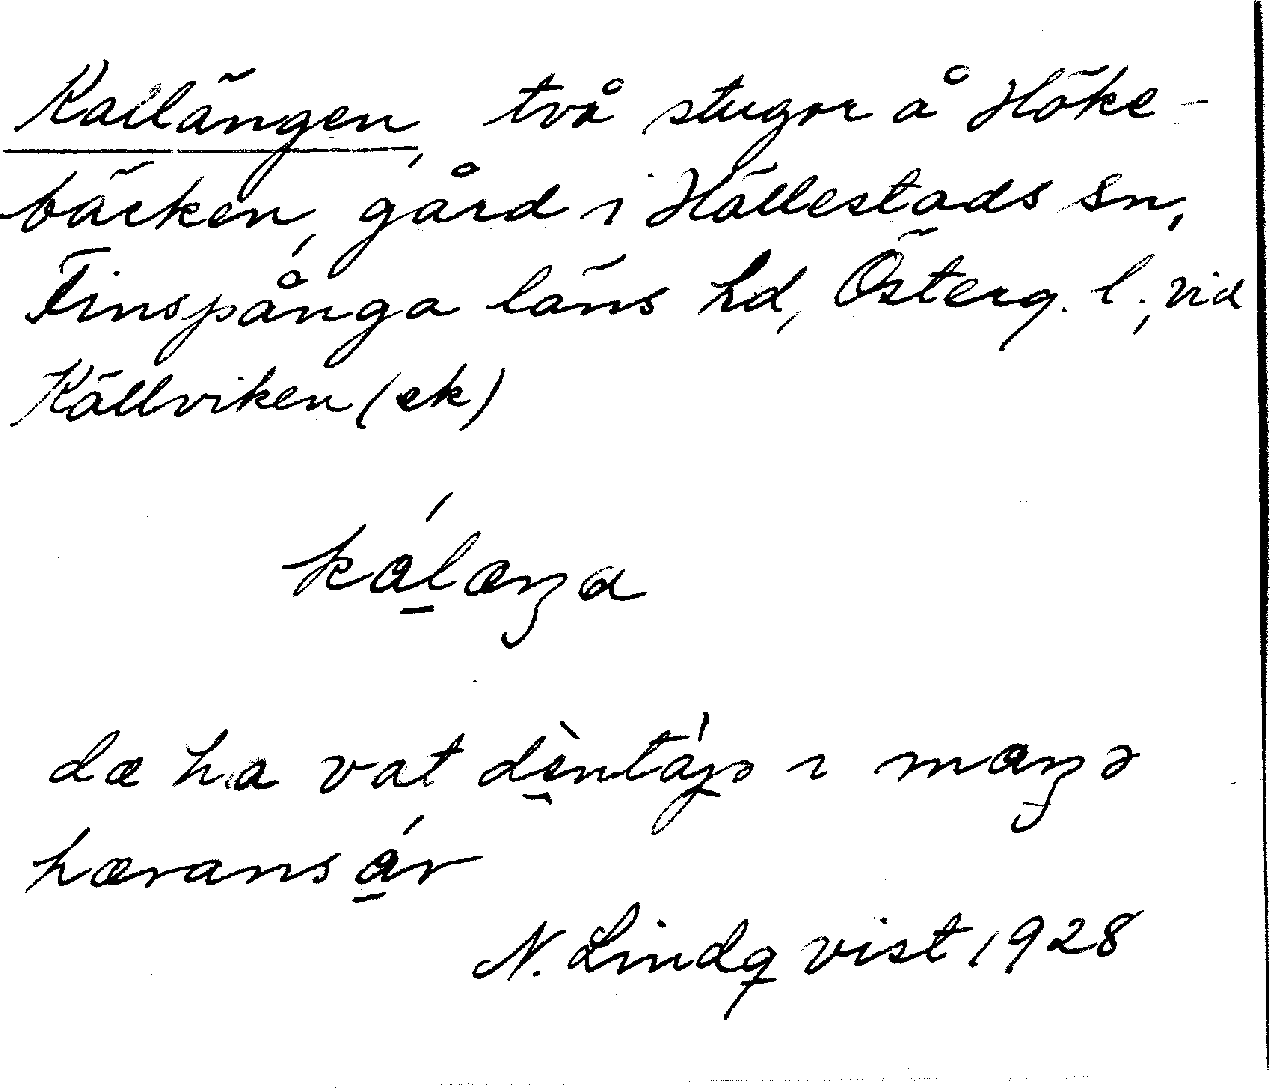 Kallängen, två stugor å Höke-
bäcken, gård i Hällestads sn,
Finspånga läns hd, Österg. l., vid
Källviken (ek)
kálæŋa
dæ ha vat i maŋə
hærans ár
N. Lindqvist 1928